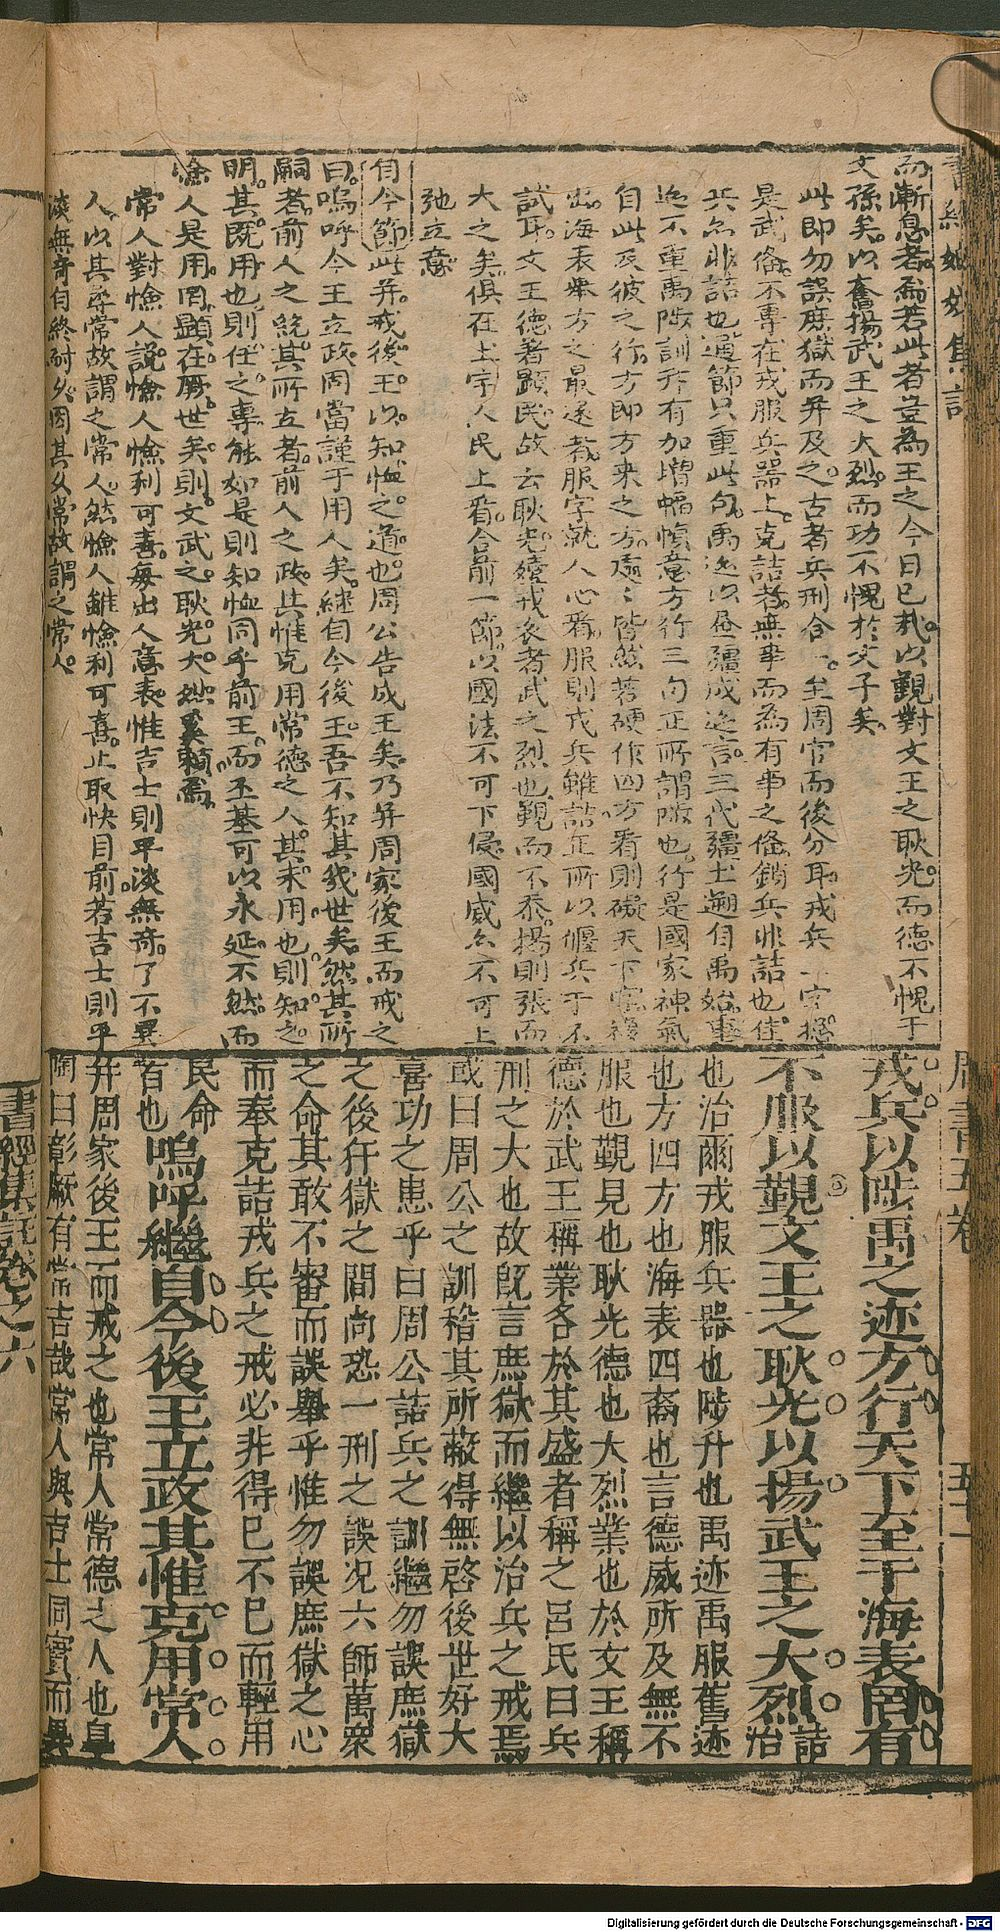 而漸息者為若此者豈為王之今日已哉以覲對文王之耿光而德不愧于
文孫矣以奮揚武王之大烈而功不愧於文子矣
此即勿誤庶獄而并及之古者兵刑合一至周官而後分耳戎兵一字極
是武備不專在戎服兵器上克詰者無事而為有事之備銷兵非詰也佳
兵亦非詰也通節只重此句禹迹以疆成迹言三代疆土遡自禹始
迹不重禹陟訓升有加增幅幀意方行三句正所謂陟也行是國家神氣
自此及彼之行方即方來之方處處皆然若硬作四方看則礙天下
出海表舉方之最遠者服字就人心看服則戎兵雖詰正所以偃兵于不
試耳文王德著顯民故云耿光續戎衣者武之烈也覲而不忝揚則張而
大之矣俱在上字人民上看合前一節以國法不可下侵國威亦不可上
弛立意
自今節此并戒後王以知恤之道也周公告成王矣乃并周家後王而戒之
曰嗚呼今王立政罔當謹于用人矣繼自今後王吾不知其幾世矣然其所
嗣者前人之統其所立者前人之政其惟克用常德之人其未用也則知之
明其既用也則任之專能如是則知恤同乎前王而丕基可以永延不然而
憸人是用罔顯在厥世矣則文武之耿光大烈奚賴焉
常人對憸人說憸人憸利可喜每出人意表惟吉士則平淡無奇了不異
人以其尋常故謂之常人然憸人雖憸利可喜止取快目前若吉士則平
淡無奇自終耐久因其久常故謂之常人
周書五卷
戎兵以陟禹之迹方行天下至于海表罔有
不服以覲文王之耿光以揚武王之大烈詰治
也治爾戎服兵器也陟升也禹迹禹服舊迹
也方四方也海表四裔也言德威所及無不
服也覲見也耿光德也大烈業也於文王稱
德於武王稱業各於其盛者稱之呂氏曰兵
刑之大也故既言庶獄而繼以治兵之戒焉
或曰周公之訓稽其所蔽得無啓後世好大
喜功之患乎曰周公詰兵之訓繼勿誤庶獄
之後犴獄之間尚恐一刑之誤况六師萬衆
之命其敢不審而誤舉乎惟勿誤庶獄之心
而奉克詰戎兵之戒必非得已不已而輕用
民命者也嗚呼繼自今後王立政其惟克用常人
并周家後王而戒之也常人常德之人也皐
陶曰彰厥有常吉哉常人與吉士同實而異
書經集註卷之六
Digitalisierung gefördert durch die Deutsche Forschungsgemeinschaft - DFG